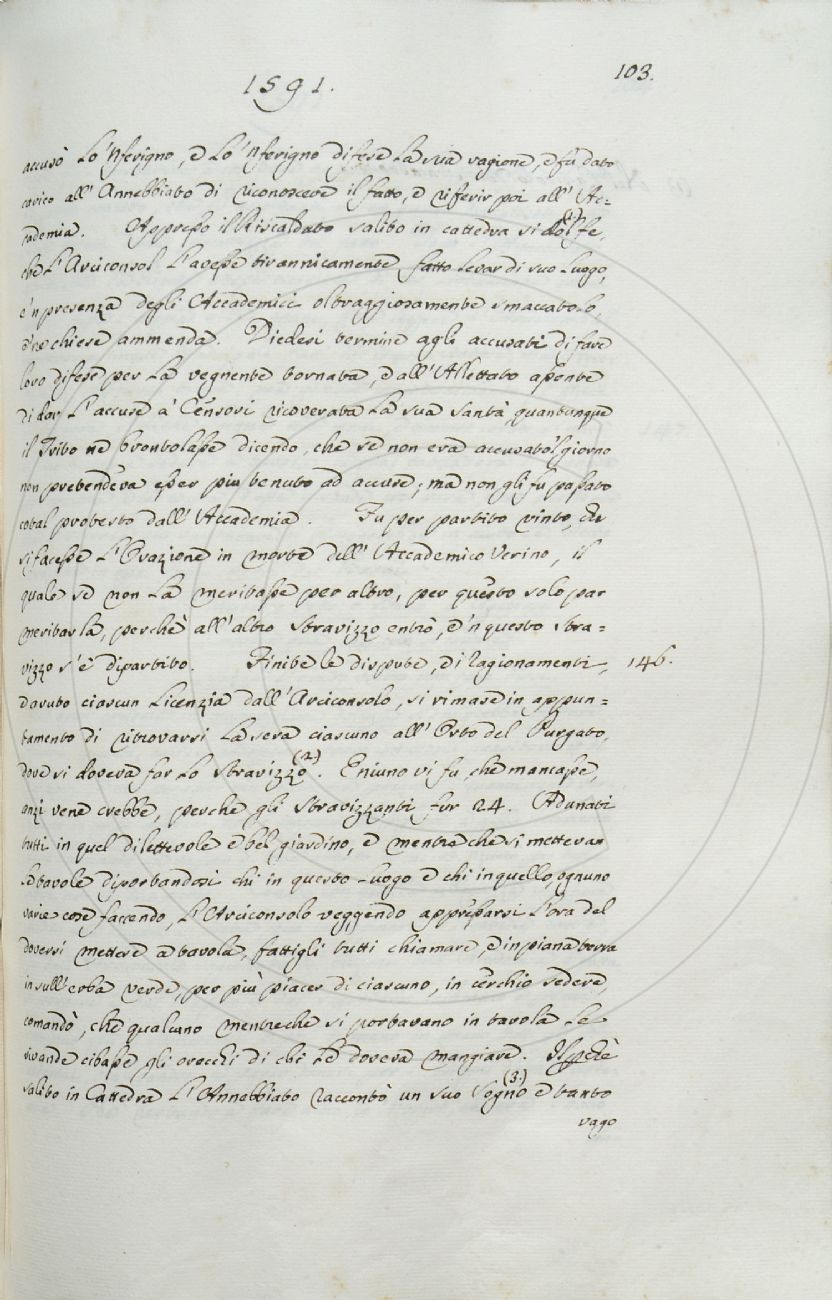 103.
1591.
accusò Lo 'Nferigno, e Lo 'Nferigno difese La sua ragione, e fù dato
carico all' Annebbiato di riconoscere il fatto, e riferir poi all' Ac=
cademia. Appresso il Riscaldato salito in cattedra si dolfe, (1.)
che L'Arciconsol L'avesse tirannicamente fatto levar di suo Luogo,
e 'n presenza degli Accademici oltraggiosamente smaccatolo,
e ne chiese ammenda. Diedesi termine agli accusati di fare
loro difese per La vegnente tornata, e all' Allettato aponte
di dar L'accuse a' Censori ricoverata La sua santà quantunque
il Trito ne brontolasse dicendo, che se non era accusato 'l giorno
non pretendeva esser più tenuto ad accuse; ma non gli fu passato
cotal protesto dall' Accademia. Fu per partito vinto, che
si facesse L'Orazione in morte dell' Accademico Verino, il
quale se non La meritasse per altro, per questo solo par
meritarla, perchè all' altro Stravizzo entrò, e 'n questo Stra=
vizzo s'è dipartito. Finite le dispute, e i Ragionamenti, 146.
davuto ciascun Licenzia dall' Arciconsolo, si rimase in appun=
tamento di ritrovarsi La sera ciascuno all' Orto del Purgato,
dove si doveva far Lo Stravizzo (2.). E niuno vi fu, che mancasse,
anzi vene crebbe, perchè gli Stravizzanti fur 24. Adunati
tutti in quel dilettevole e bel giardino, e mentre che si mettevan
Le tavole diportandosi chi in questo Luogo e chi in quello, ognuno
varie cose faccendo, L'Arciconsolo veggendo appressarsi L'ora del
doversi mettere a tavola, fattigli tutti chiamare, e in piana terra
in sull' erba verde, per più piacer di ciascuno, in cerchio sedere,
comandò, che qualcuno mentreche si portavano in tavola Le
vivande cibasse gli orecchi di chi Le doveva mangiare. Il perchè
salito in Cattedra L'Annebbiato raccontò un suo Sogno (3.) e tanto
vago